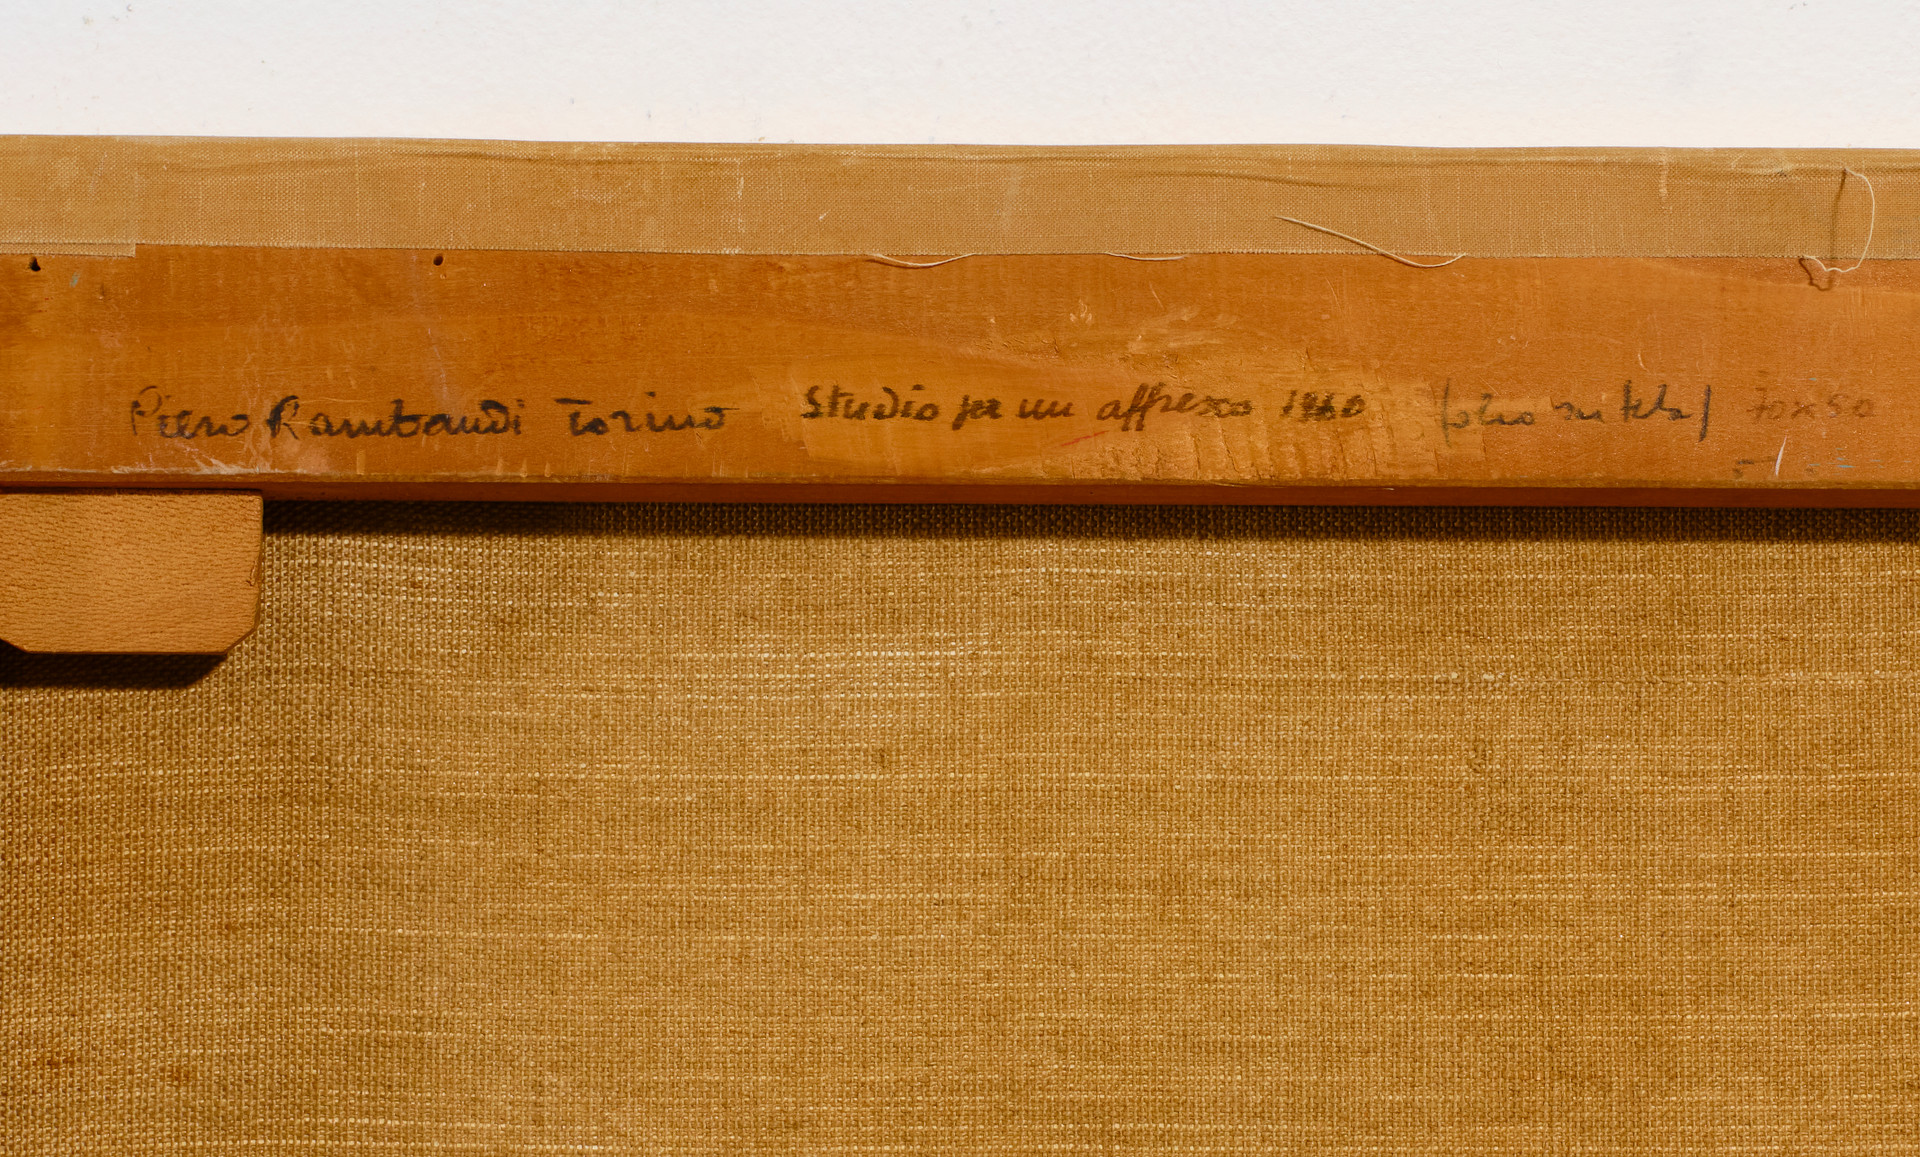 Piero Rambaudi Torino Studio per un affresco 1960 (olio su tela) 70x50